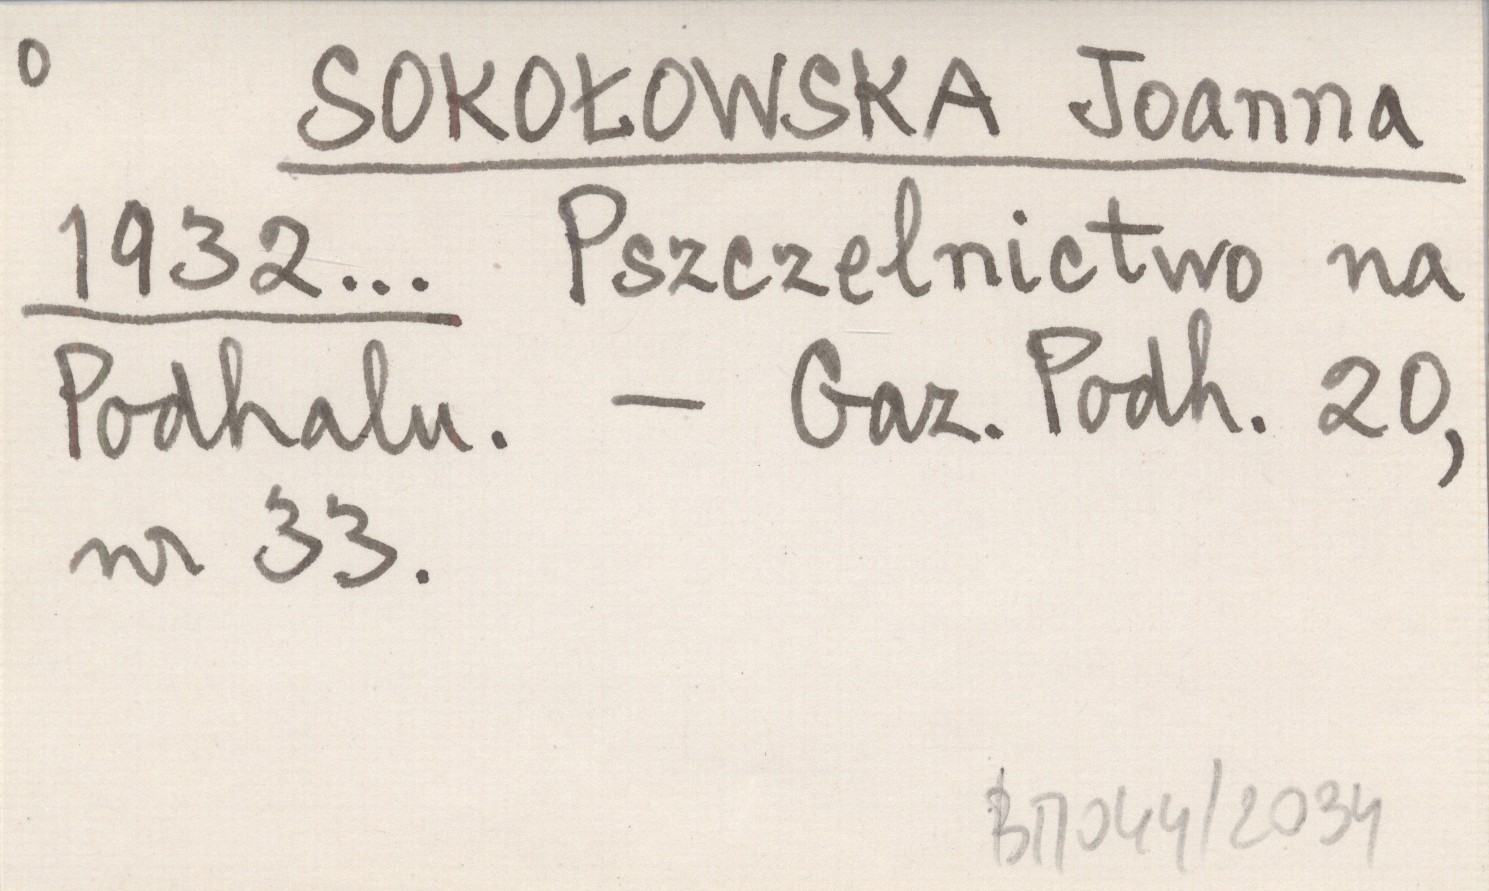 o SOKOŁOWSKA Joanna
1932... Pszczelnictwo na
Podhalu. – Gaz. Podh. 20,
nr 33.
ВП044/2034